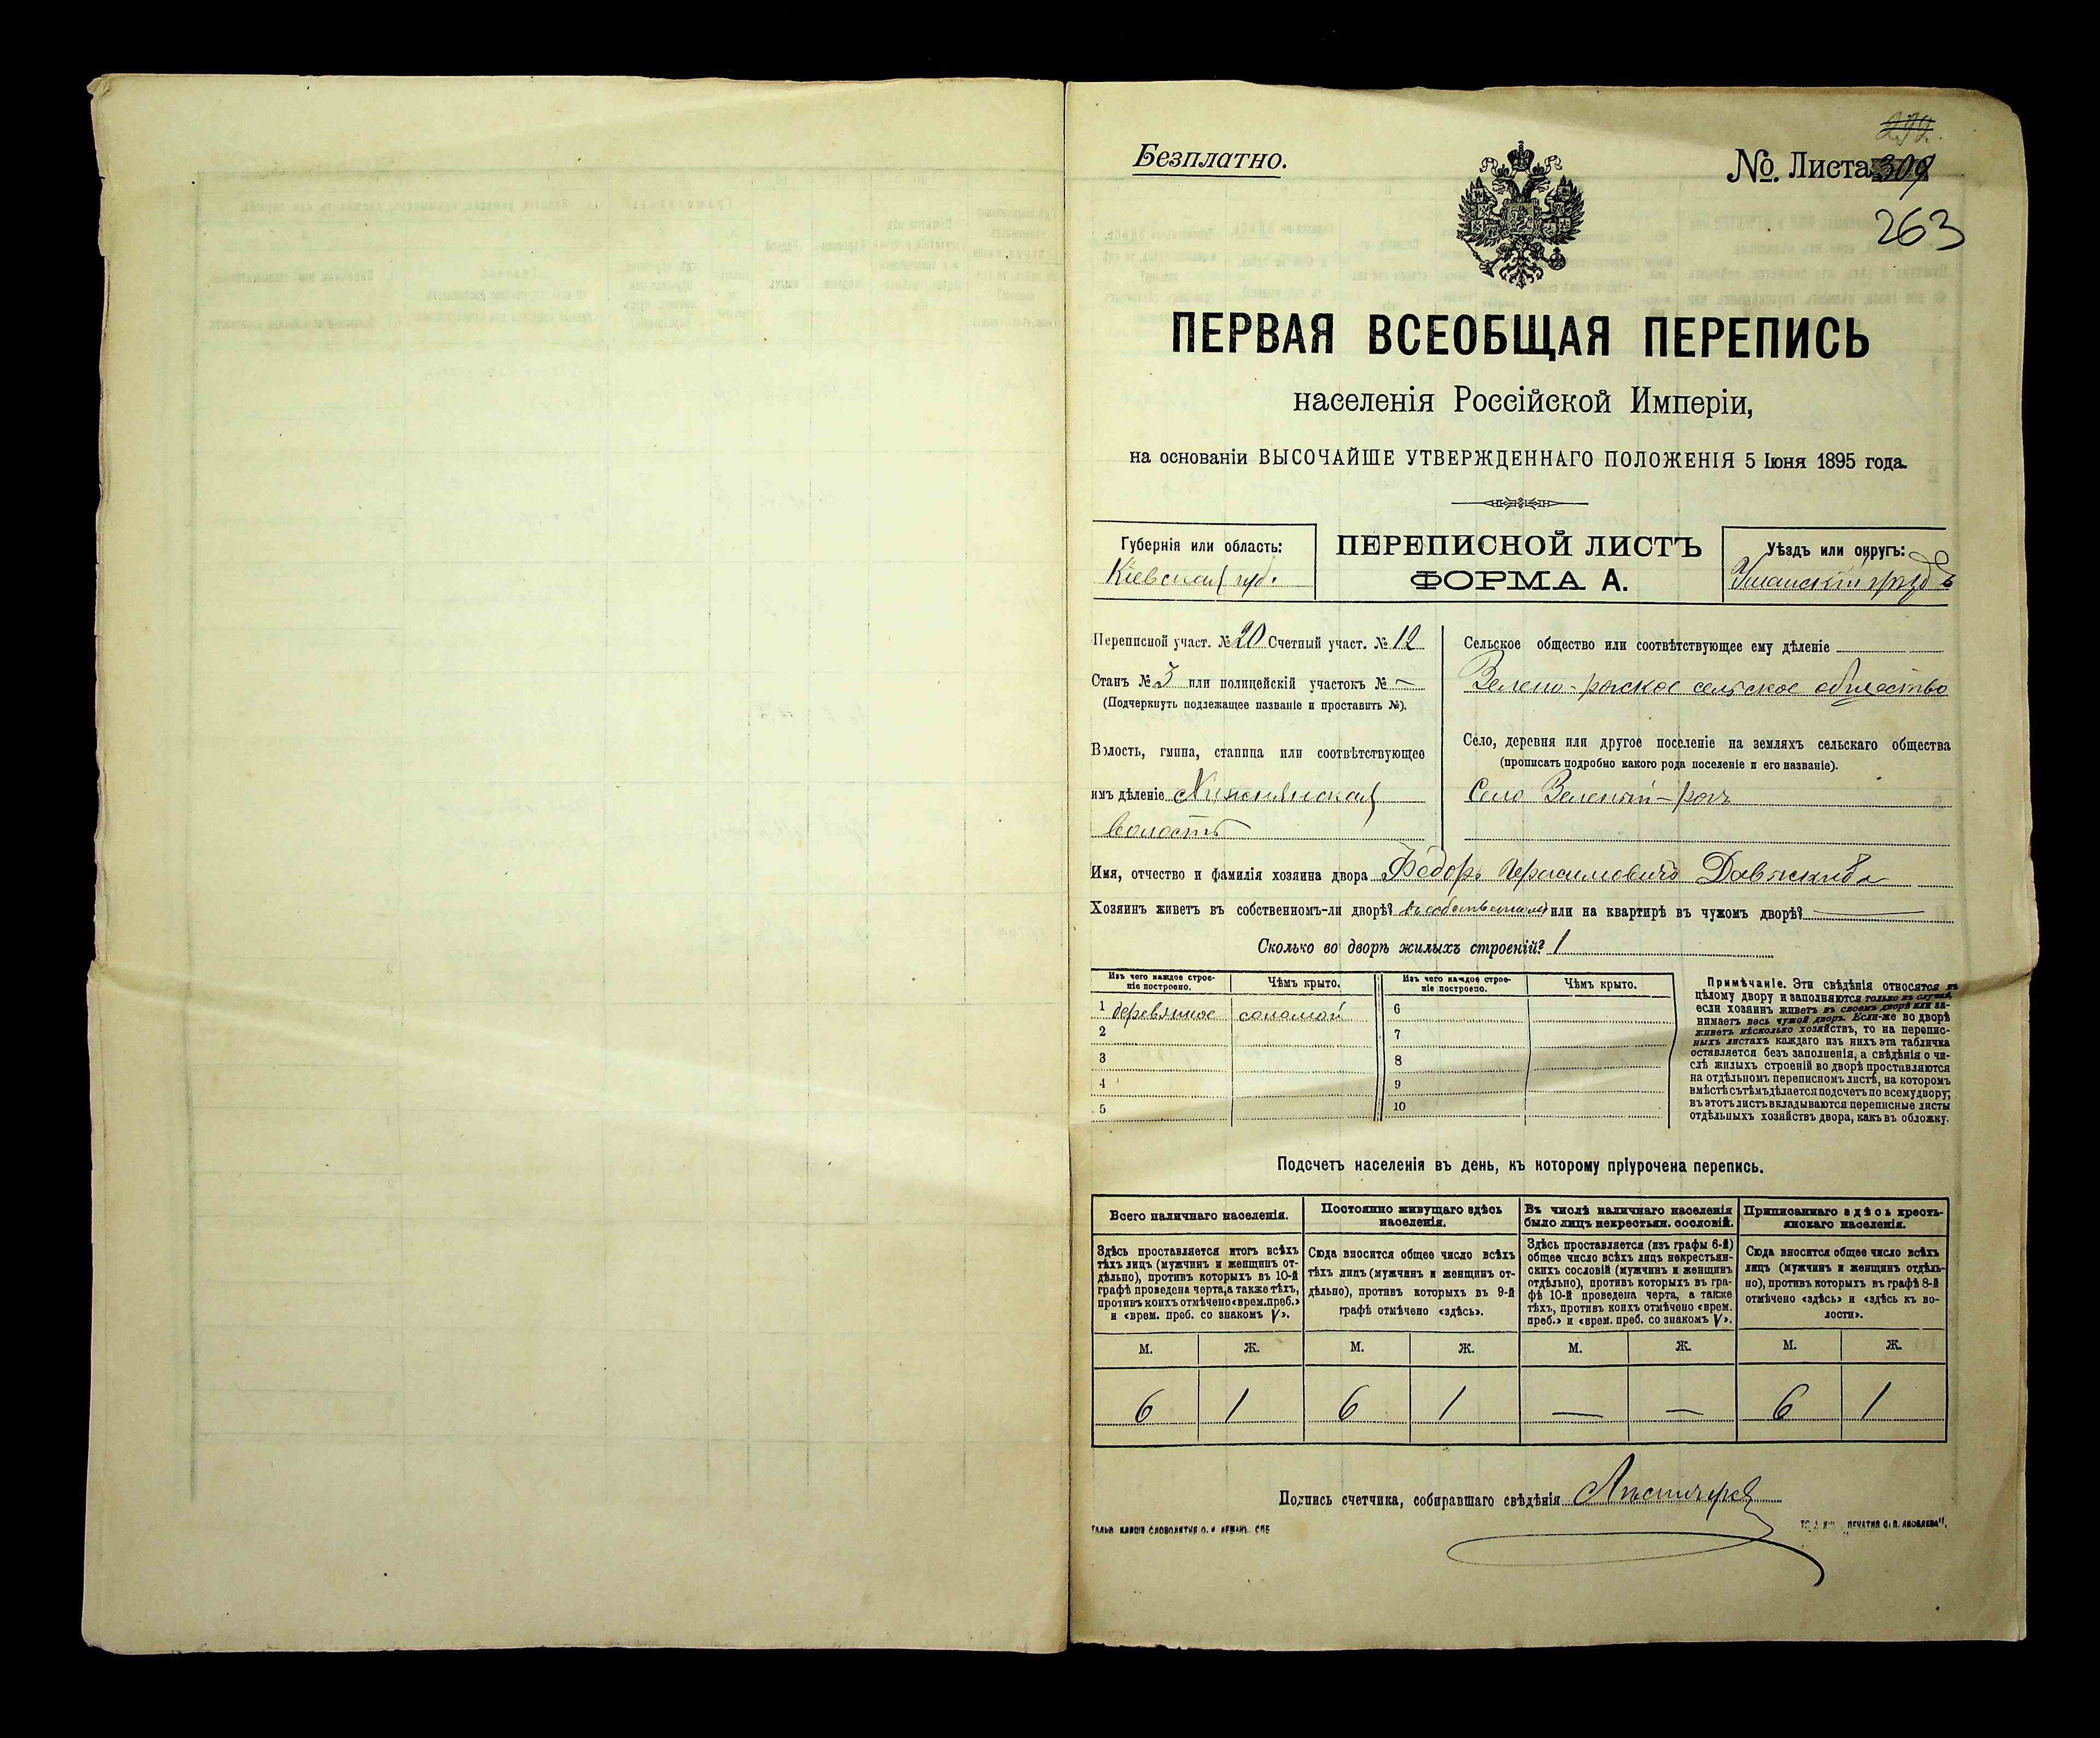 Безплатно.
№ Листа 309
263
ПЕРВАЯ ВСЕОБЩАЯ ПЕРЕПИСЬ
населенія Россійской Имперіи,
на основаніи ВЫСОЧАЙШЕ УТВЕРЖДЕННАГО ПОЛОЖЕНІЯ 5 Іюня 1895 года.
Губернія или область:
Кіевская губ.
ПЕРЕПИСНОЙ ЛИСТЪ
ФОРМА А.
Уѣздъ или округъ:
Уманскій уѣздъ
Переписной участ. № 20 Счетный участ. № 12
Станъ № 3 или полицейскій участокъ № —
(Подчеркнуть подлежащее названіе и проставить №).
Волость, гмина, станица или соотвѣтствующее
имъ дѣленіе
волость
Сельское общество или соотвѣтствующее ему дѣленіе
Зелено-рогское сельское общество
Село, деревня или другое поселеніе на земляхъ сельскаго общества
(прописать подробно какого рода поселеніе и его названіе).
Село Зеленый-рогъ
Имя, отчество и фамилія хозяина двора Ѳедоръ Герасимовичъ
Хозяинъ живетъ въ собственномъ-ли дворѣ? въ собственномъ или на квартирѣ въ чужомъ дворѣ? —
Сколько во дворѣ жилыхъ строеній? 1
Изъ чего каждое строе-
ніе построено.
Чѣмъ крыто.
Изъ чего каждое строе-
ніе построено.
Чѣмъ крыто.
1 деревянное соломой
2
3
4
5
6
7
8
9
10
Примѣчаніе. Эти свѣдѣнія относятся къ
цѣлому двору и заполняются только въ случаѣ,
если хозяинъ живетъ въ своемъ дворѣ или за-
нимаетъ весь чужой дворъ. Если-же во дворѣ
живетъ нѣсколько хозяйствъ, то на перепис-
ныхъ листахъ каждаго изъ нихъ эта табличка
оставляется безъ заполненія, а свѣдѣнія о чи-
слѣ жилыхъ строеній во дворѣ проставляются
на отдѣльномъ переписномъ листѣ, на которомъ
вмѣстѣ съ тѣмъ дѣлается подсчетъ по всему двору;
въ этотъ листъ вкладываются переписные листы
отдѣльныхъ хозяйствъ двора, какъ въ обложку.
Подсчетъ населенія въ день, къ которому пріурочена перепись.
Всего наличнаго населенія.
Здѣсь проставляется итогъ всѣхъ
тѣхъ лицъ (мужчинъ и женщинъ от-
дѣльно), противъ которыхъ въ 10-й
графѣ проведена черта, а также тѣхъ,
противъ коихъ отмѣчено «врем. преб.»
и «врем. преб. со знакомъ V».
Постоянно живущаго здѣсь
населенія.
Сюда вносится общее число всѣхъ
тѣхъ лицъ (мужчинъ и женщинъ от-
дѣльно), противъ которыхъ въ 9-й
графѣ отмѣчено «здѣсь».
Въ числѣ наличнаго населенія
было лицъ некрестьян. сословій.
Здѣсь проставляется (изъ графы 6-й)
общее число всѣхъ лицъ некрестьян-
скихъ сословій (мужчинъ и женщинъ
отдѣльно), противъ которыхъ въ гра-
фѣ 10-й проведена черта, а также
тѣхъ, противъ коихъ отмѣчено «врем.
преб.» и «врем. преб. со знакомъ V».
Приписаннаго здѣсь кресть-
янскаго населенія.
Сюда вносится общее число всѣхъ
лицъ (мужчинъ и женщинъ отдѣль-
но), противъ которыхъ въ графѣ 8-й
отмѣчено «здѣсь» и «здѣсь къ во-
лости».
М. Ж. М. Ж. М. Ж. М. Ж.
6 1 6 1 — — 6 1
Подпись счетчика, собиравшаго свѣдѣнія